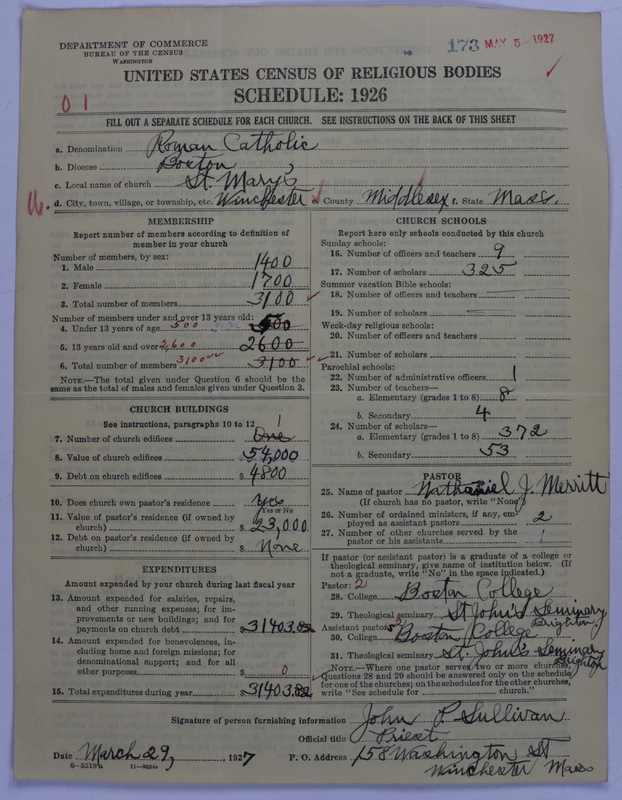 DEPARTMENT OF COMMERCE
BUREAU OF THE CENSUS
WASHINGTON
173 MAY 5 - 1927
UNITED STATES CENSUS OF RELIGIOUS BODIES
SCHEDULE: 1926
01
FILL OUT A SEPARATE SCHEDULE FOR EACH CHURCH. SEE INSTRUCTIONS ON THE BACK OF THIS SHEET
a. Denomination Roman Catholic
b. Diocese Boston
c. Local name of church St. Mary's
d. City, town, village, or township, etc. Winchester County Middlesex f. State Mass.
MEMBERSHIP
Report number of members according to definition of
member in your church
Number of members, by sex:
1. Male 1400
2. Female 1700
3. Total number of members 3100
Number of members under and over 13 years old:
4. Under 13 years of age 500 500
5. 13 years old and over 2,600 2600
6. Total number of members 3100 3100
NOTE.—The total given under Question 6 should be the
same as the total of males and females given under Question 3.
CHURCH BUILDINGS
See instructions, paragraphs 10 to 12
7. Number of church edifices One 1
8. Value of church edifices $ 54,000
9. Debt on church edifices $ 4800
10. Does church own pastor's residence Yes
Yes or No
11. Value of pastor's residence (if owned by
church) $ 23,000
12. Debt on pastor's residence (if owned by
church) $ None
EXPENDITURES
Amount expended by your church during last fiscal year
13. Amount expended for salaries, repairs,
and other running expenses; for im-
provements or new buildings; and for
payments on church debt $31403.82
14. Amount expended for benevolences, in-
cluding home and foreign missions; for
denominational support; and for all
other purposes $ 0
15. Total expenditures during year $31403.82
CHURCH SCHOOLS
Report here only schools conducted by this church
Sunday schools:
16. Number of officers and teachers 9
17. Number of scholars 325
Summer vacation Bible schools:
18. Number of officers and teachers
19. Number of scholars
Week-day religious schools:
20. Number of officers and teachers
21. Number of scholars
Parochial schools:
22. Number of administrative officers 1
23. Number of teachers—
a. Elementary (grades 1 to 8) 8
b. Secondary 4
24. Number of scholars—
a. Elementary (grades 1 to 8) 372
b. Secondary 53
PASTOR
25. Name of pastor Nathaniel J. Merritt
(If church has no pastor, write "None")
26. Number of ordained ministers, if any, em-
ployed as assistant pastors 2
27. Number of other churches served by the
pastor or his assistants 1
If pastor (or assistant pastor) is a graduate of a college or
theological seminary, give name of institution below. (If
not a graduate, write "No" in the space indicated.)
Pastor: 2
28. College Boston College
29. Theological seminary St John's Seminary
Brighton.
Assistant pastor: 2
30. College Boston College
31. Theological seminary St. John's Seminary
Brighton
NOTE.—Where one pastor serves two or more churches,
Questions 28 and 29 should be answered only on the schedule
for one of the churches; on the schedules for the other churches,
write "See schedule for church."
Signature of person furnishing information John P Sullivan
Official title Priest
Date March 29, 1927 P. O. Address 158 Washington St
8-5518a Winchester Mass